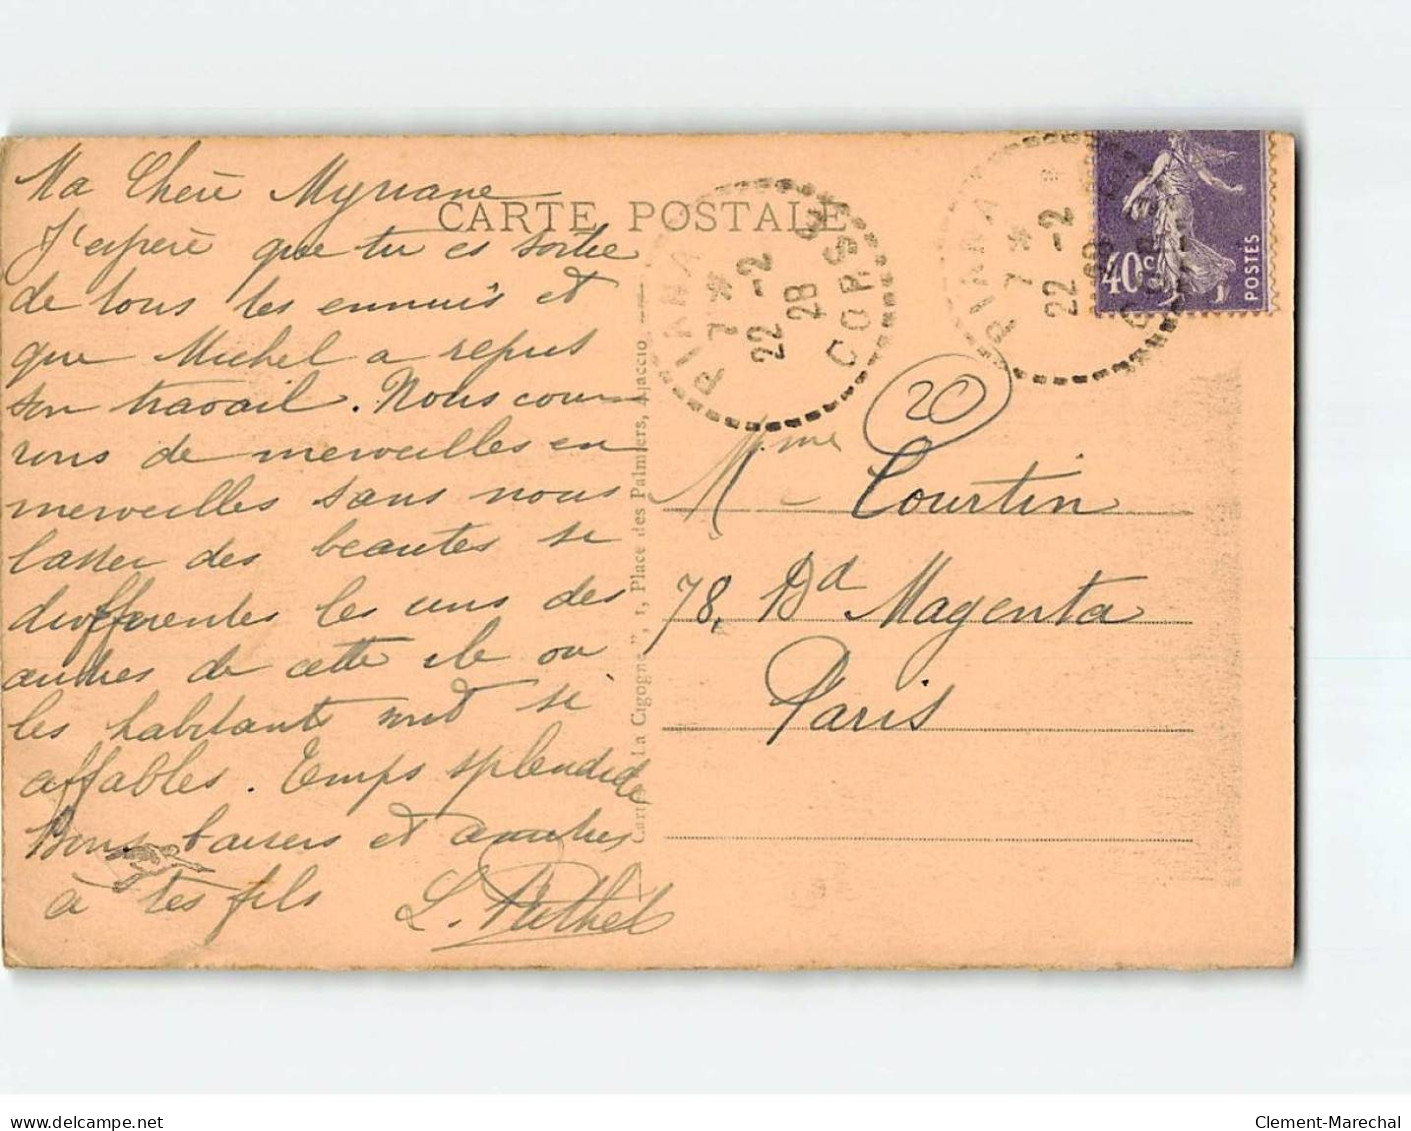 CARTE POSTALE
Ma Chère Myriane
J'espère que tu es sortie
de tous les ennuis et
que Michel a repris
son travail. Nous cou-
rons de merveilles en
merveilles sans nous
lasser des beautés si
différentes les unes des
autres de cette ile ou
les habitants sont si
affables. Temps splendide
Bons baisers et amitiés
à tes fils
L.
Cartes " La Cigogne ", 1, Place des Palmiers, Ajaccio
PIANA
7 *
22 -2
28
CORSE
PIANA
7 *
22 -2
28
40c
POSTES
20
Mme Courtin
78, Bd Magenta
Paris
www.delcampe.net
Clement-Marechal